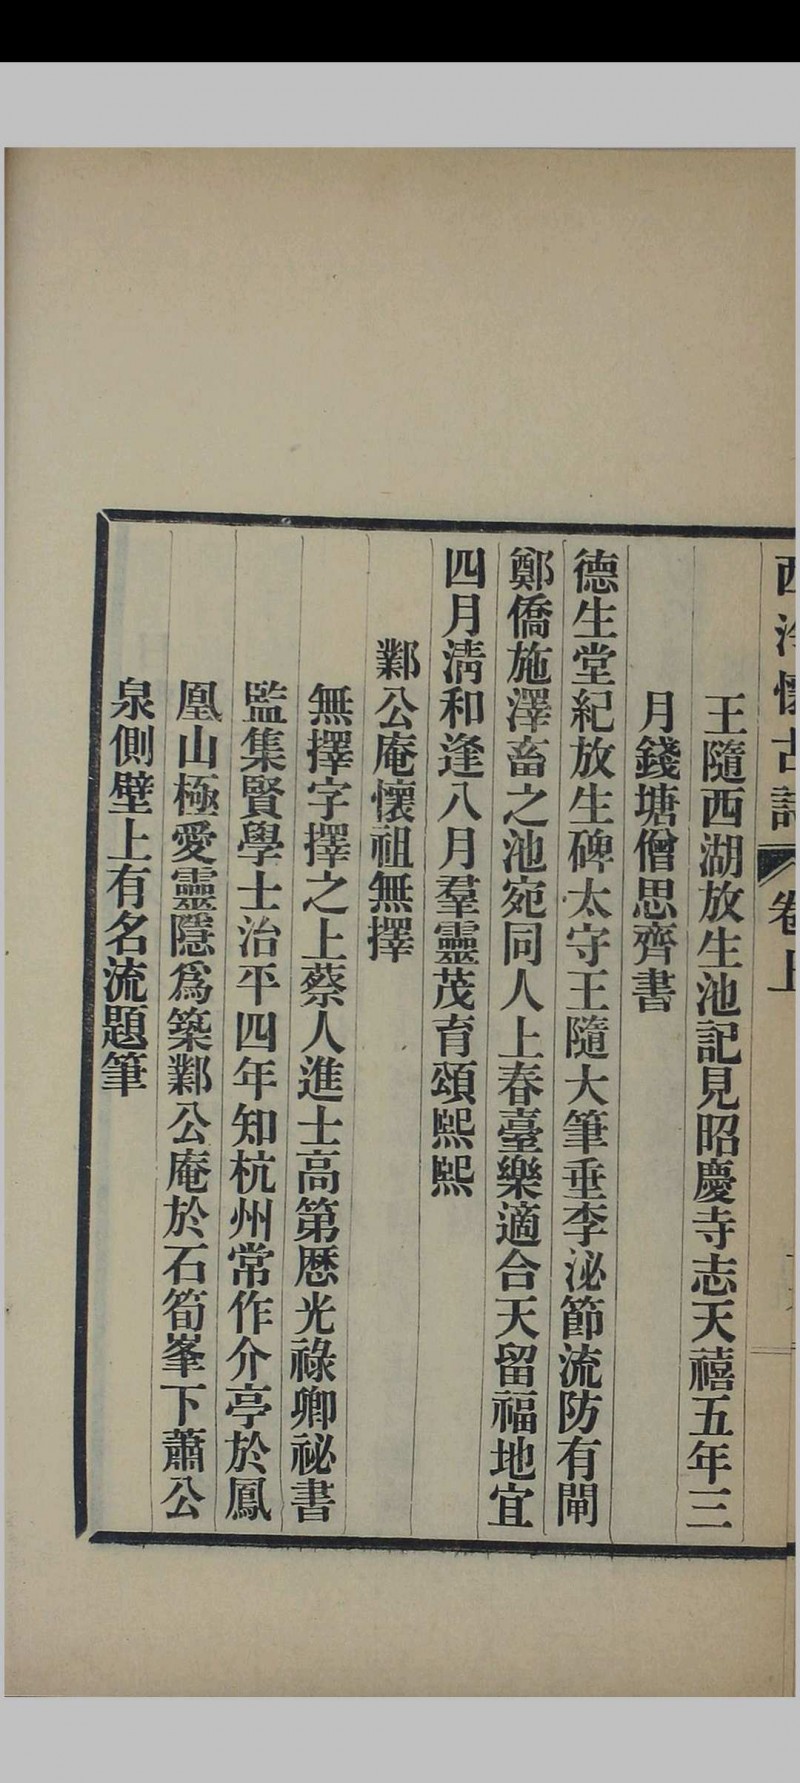 西泠懷古詩 卷上
王隨西湖放生池記見昭慶寺志天禧五年三
月錢塘僧思齊書
德生堂紀放生碑太守王隨大筆垂李泌節流防有閘
鄭僑施澤畜之池宛同人上春臺樂適合天留福地宜
四月淸和逢八月羣靈茂育頌熙熙
鄴公庵懷祖無擇
無擇字擇之上蔡人進士高第歷光祿卿祕書
監集賢學士治平四年知杭州常作介亭於鳳
凰山極愛靈隱爲築鄴公庵於石筍峯下蕭公
泉側壁上有名流題筆